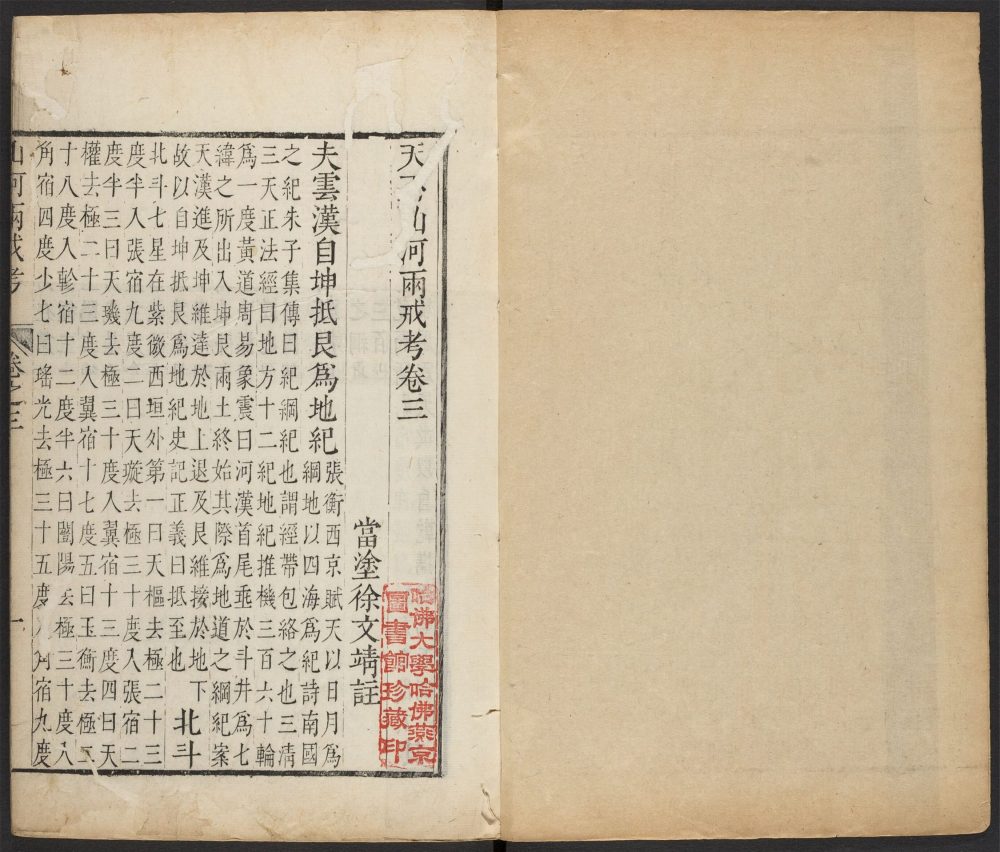 天下山河兩戒考卷三
當塗徐文靖註
哈佛大學哈佛燕京
圖書館珍藏印
夫雲漢自坤抵艮爲地紀
張衡西京賦天以日月爲
綱地以四海爲紀詩南國
之紀朱子集傳曰紀綱紀也謂經帶包絡之也三淸
三天正法經曰地方十二紀地紀推機三百六十輪
爲一度黃道周易象震曰河漢首尾垂於斗井爲七
緯之所出入坤艮兩土終始其際爲地道之綱紀案
天漢進及坤維達於地上退及艮維接於地下
故以自坤抵艮爲地紀史記正義曰抵至也
北斗
北斗七星在紫微西垣外第一曰天樞去極二十三
度半入張宿九度二曰天璇去極三十度入張宿二
度半三曰天璣去極三十度入翼宿十三度四曰天
權去極二十三度入翼宿十七度五曰玉衡去極二
十八度入軫宿十二度半六曰闓陽去極三十度入
角宿四度少七曰瑤光去極三十五度入角宿九度
山河兩戒考 卷之三 一